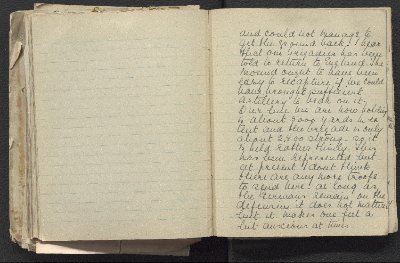 and could not manage to
get the ground back. I hear
that our brigadier has been
told to return to England. The
ground ought to have been
easy to recapture if we could
have brought sufficient
artillery to bear on it.
Our line we are now holding
is about 9000 yards in ex
tent and the brigade is only
about 2,400 strong. so it
is held rather thinly. This
has been represented but
at present I don't think
there are any more troops
to send here. as long as
the Germans remain on the
defensive it does not matter
but it makes one feel a
bit anxious at times